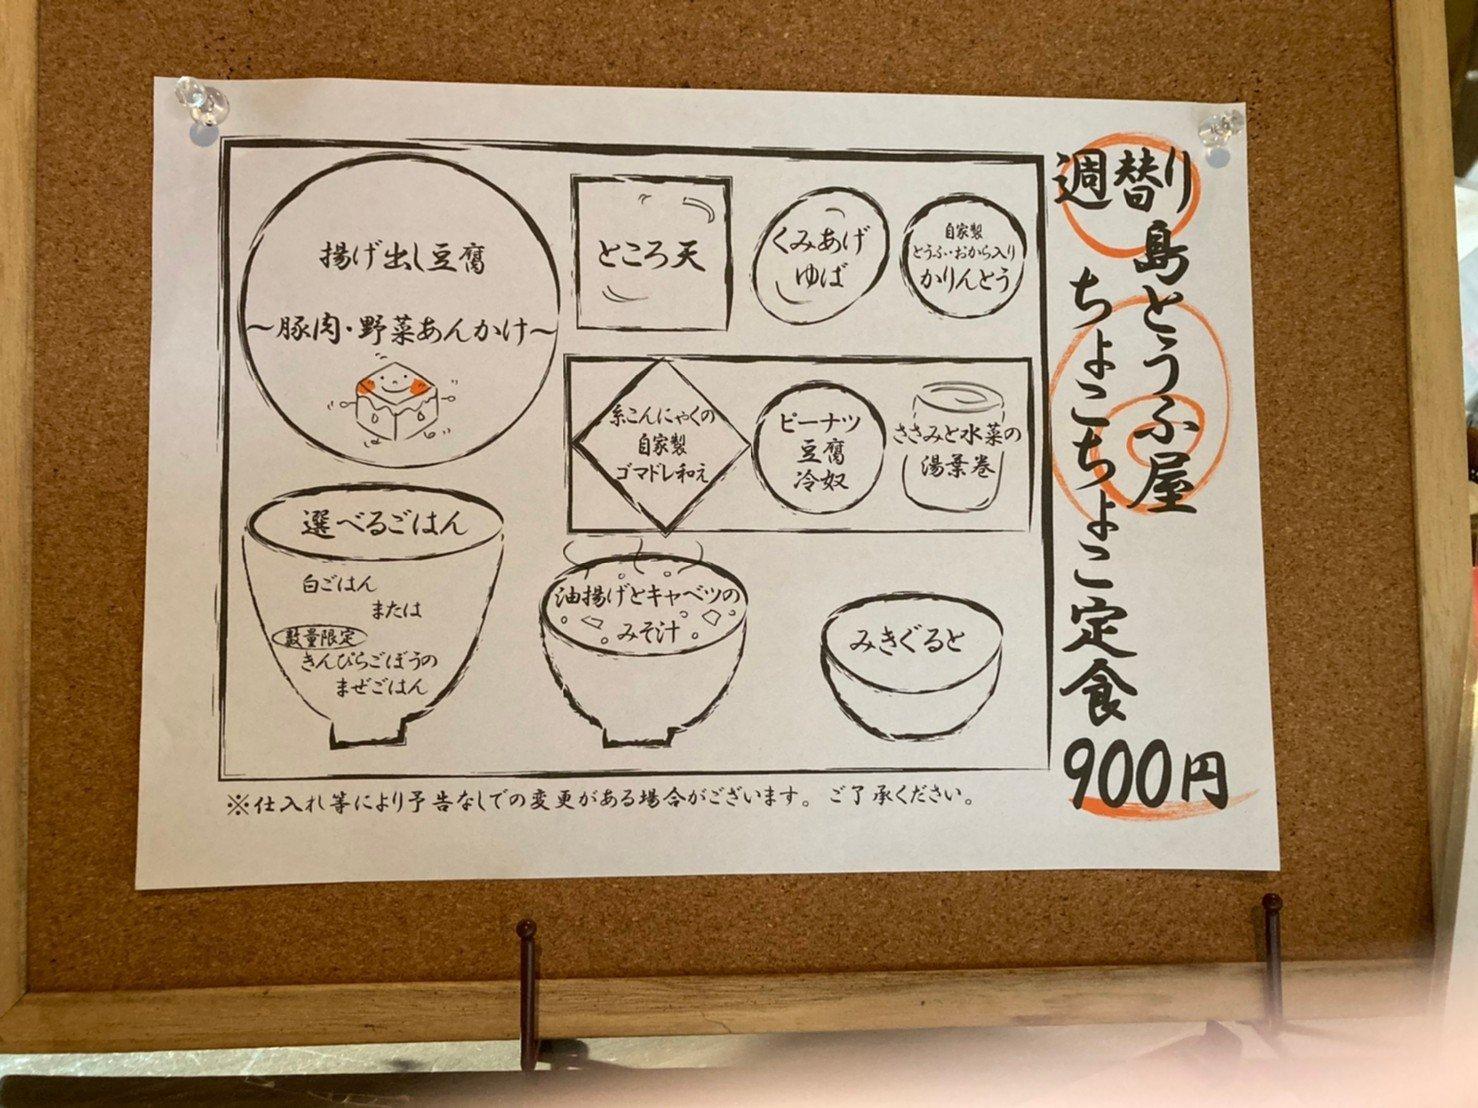 週替り
島とうふ屋
ちょこちょこ定食
900円
揚げ出し豆腐
～豚肉・野菜あんかけ～
ところ天
くみあげ
ゆば
自家製
とうふ・おから入り
かりんとう
糸こんにゃくの
自家製
ゴマドレ和え
ピーナツ
豆腐
冷奴
ささみと水菜の
湯葉巻
選べるごはん
白ごはん
または
数量限定
きんぴらごぼうの
まぜごはん
油揚げとキャベツの
みそ汁
みきぐると
※仕入れ等により予告なしでの変更がある場合がございます。ご了承ください。